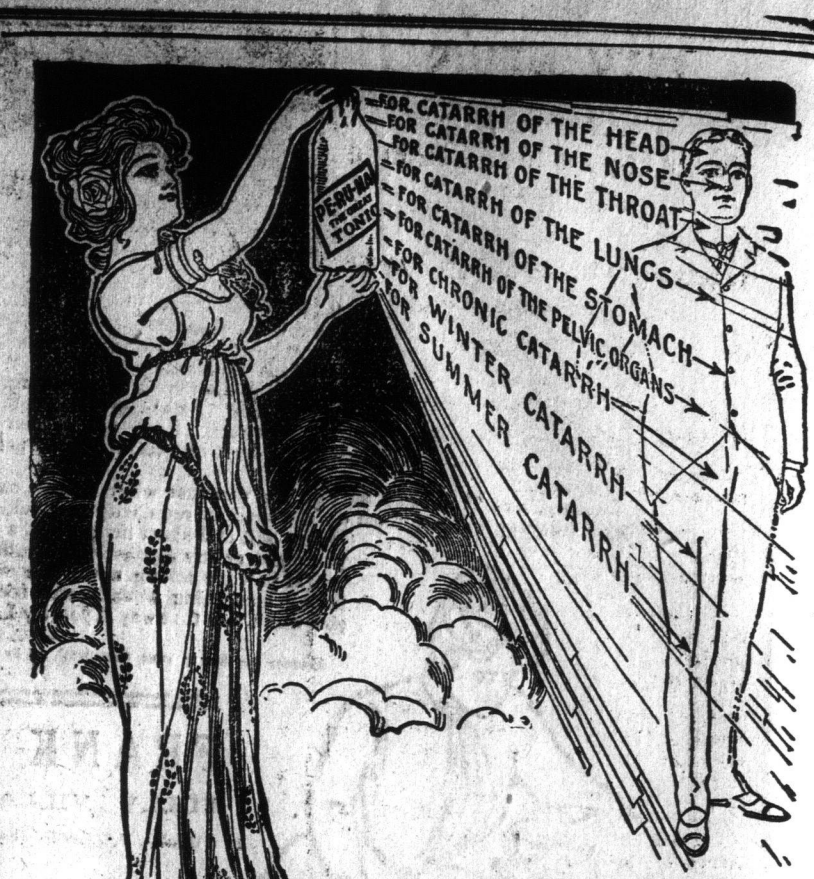 FOR CATARRH OF THE HEAD
FOR CATARRH OF THE NOSE
FOR CATARRH OF THE THROAT
FOR CATARRH OF THE LUNGS
FOR CATARRH OF THE STOMACH
FOR CATARRH OF THE PELVIC ORGANS
FOR CHRONIC CATARRH
FOR WINTER CATARRH
FOR SUMMER CATARRH
PE-RU-NA
THE GREAT
TONIC